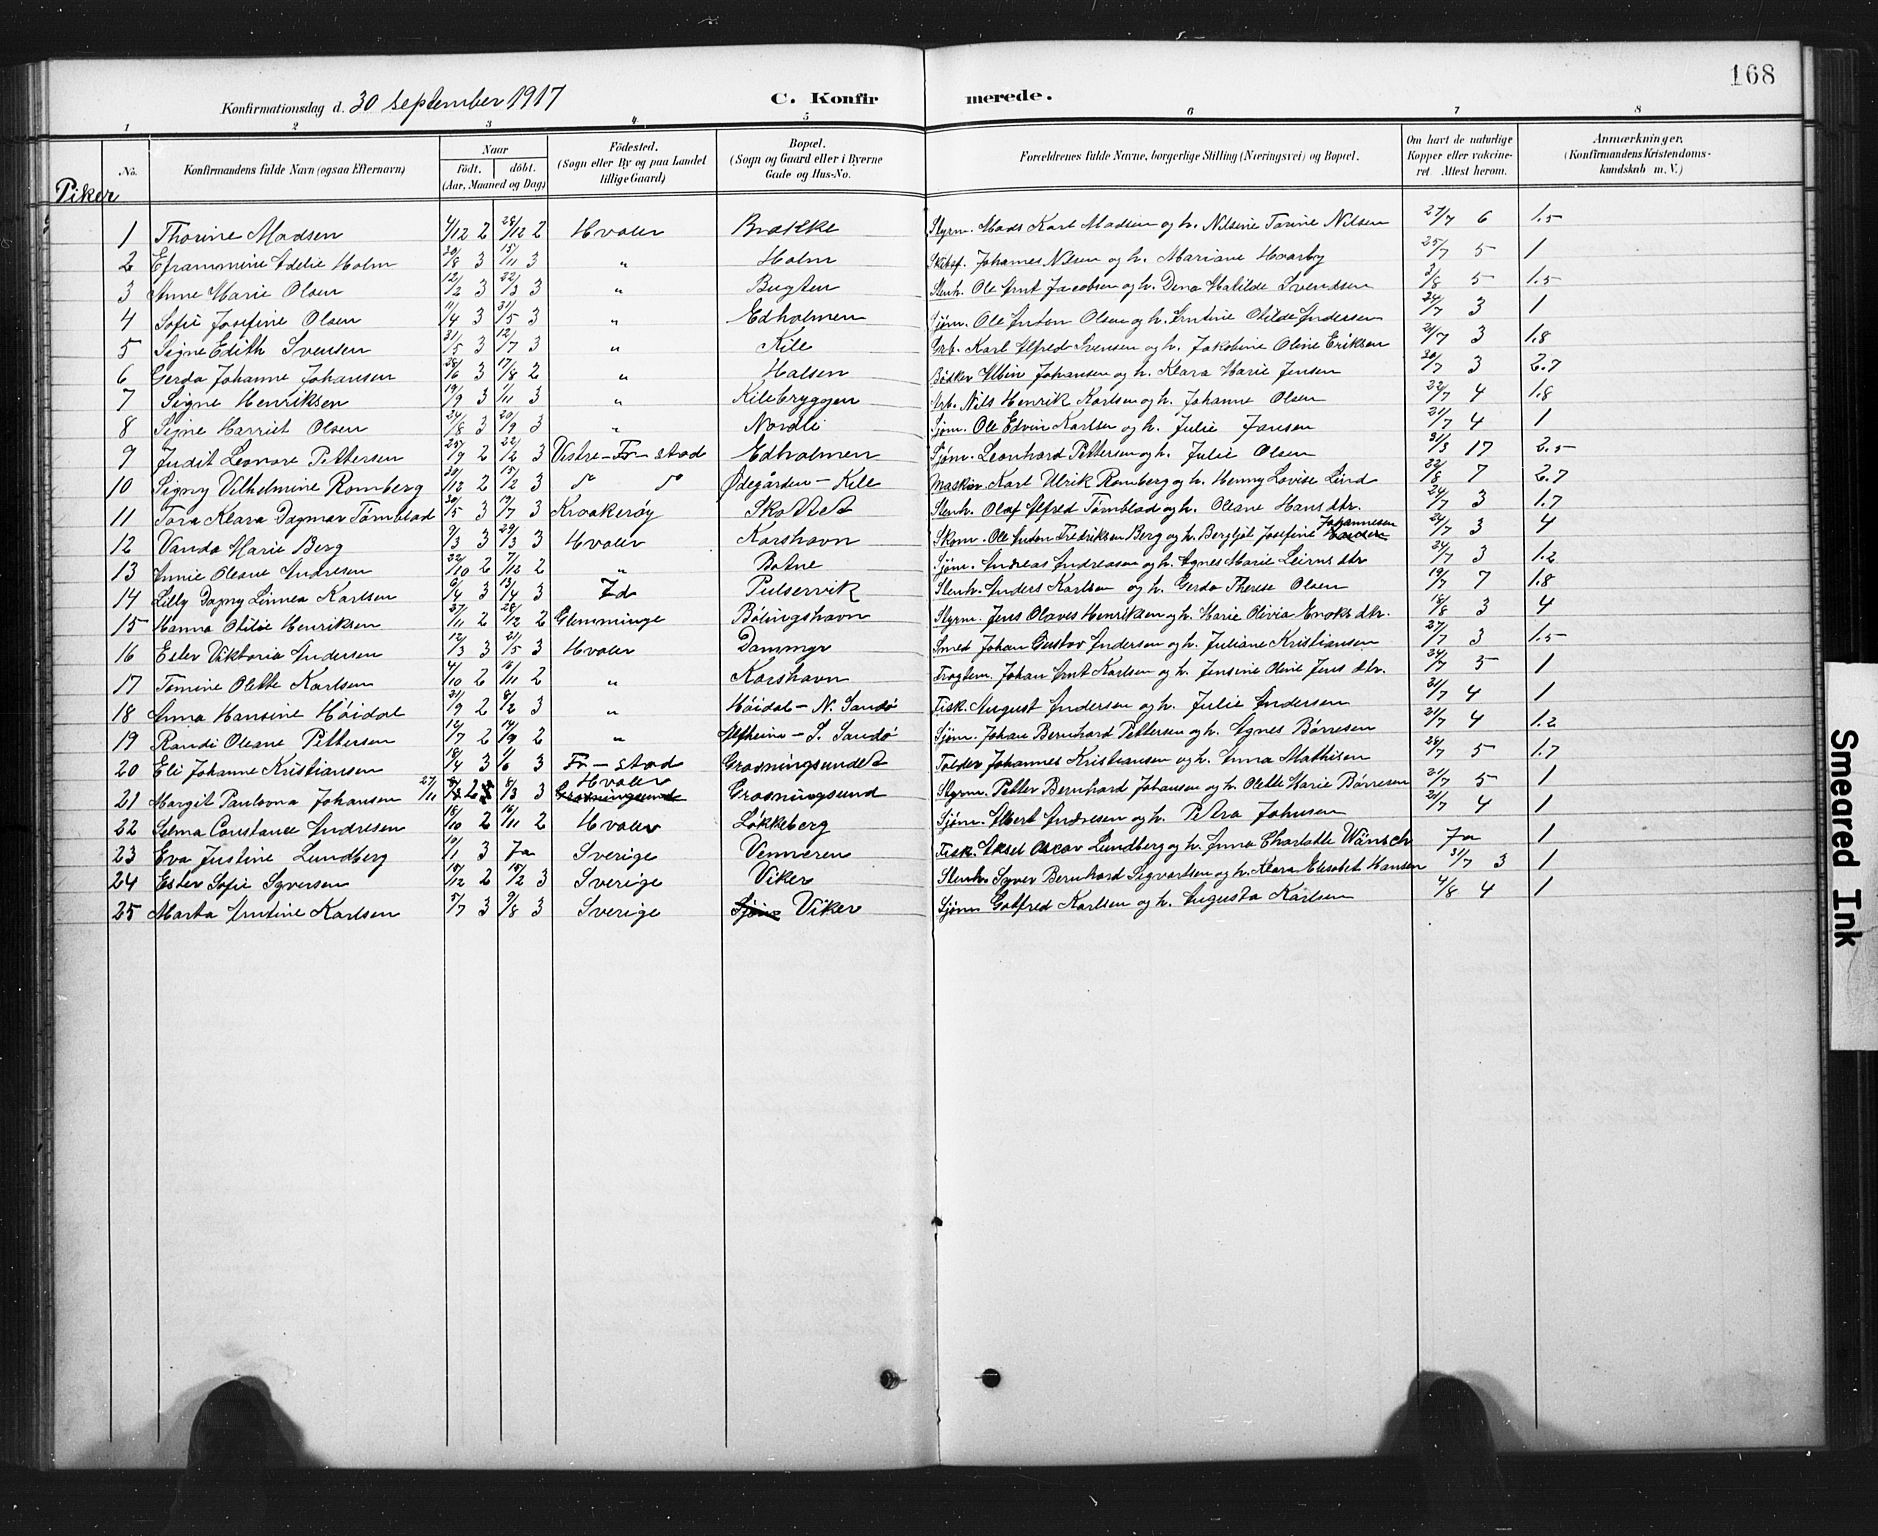 168
Konfirmationsdag d. 30 september 1917 C. Konfirmerede.
1 2 3 4 5 6 7 8
No. Konfirmandens fulde Navn (ogsaa Efternavn) Naar født. døbt. (Aar, Maaned og Dag) Fødested. (Sogn eller By og paa Landet tillige Gaard) Bopæl. (Sogn og Gaard eller i Byerne Gade og Hus-No. Forældrenes fulde Navne, borgerlige Stilling (Næringsvei) og Bopæl. Om havt de naturlige Kopper eller vakcineret Attest herom. Anmærkninger, (Konfirmandens Kristendomskundskab m. V.)
Piker
1 Thorine Madsen 4/12 2 28/12 2 Hvaler Brække Styrm. Mads Karl Madsen og h. Nilsine Tonine Nilsen 27/7 6 1.5
2 Eframmine Adelie Holm 20/8 3 15/11 3 " Holm Skibsf. Johannes Nilsen og h. Mariane Hvarby 25/7 5 1
3 Anne Marie Olsen 12/2 3 22/3 3 " Bugten Stenh. Ole Arnt Jacobsen og h. Dena Matilde Svendsen 3/8 5 1.5
4 Sofie Josefine Olsen 11/4 3 31/5 3 " Edholmen Sjøm. Ole Anton Olsen og h. Arntine Otilde Andersen 24/7 3 1
5 Signe Edith Svensen 21/5 3 12/7 3 " Kile Grb. Karl Alfred Svensen og h. Jakobine Oline Eriksen 21/7 3 1.8
6 Gerda Johanne Johansen 28/6 3 17/8 2 " Halsen Bødker Albin Johansen og h. Klara Marie Jensen 20/7 3 2.7
7 Signe Henriksen 19/9 3 1/11 3 " Kilebryggen Arb. Nils Henrik Karlsen og h. Johanne Olsen 22/7 4 1.8
8 Signe Harriet Olsen 24/8 3 20/9 3 " Nordli Sjøm. Ole Edvin Karlsen og h. Julie Jansen 21/7 4 1
9 Judit Leonore Pettersen 25/9 2 22/2 3 Vestre-Fr-stad Edholmen Sjøm. Leonhard Pettersen og h. Julie Olsen 31/3 17 2.5
10 Signy Vilhelmine Romberg 30/12 2 15/2 3 do do Ødegården-Kile Maskin. Karl Ulrik Romberg og h. Henny Lovise Lind 22/8 7 2.7
11 Tora Klara Dagmar Tørnblad 30/5 3 19/7 3 Kraakerøy Skovtet Stenh. Olaf Alfred Tørnblad og h. Oleane Hans dtr. 24/7 3 1.7
12 Vanda Marie Berg 9/3 3 29/3 3 Hvaler Korshavn Skom. Ole Anton Fredriksen Berg og h. Bergljot Josefine Johannesen 24/7 3 4
13 Annie Oleane Andresen 22/10 2 7/12 2 " Botne Sjøm. Andreas Andreasen og h. Agnes Marie Leirns dtr 24/7 3 1.2
14 Lilly Dagny Linnea Karlsen 6/4 3 13/4 3 Id Pulservik Stenh. Anders Karlsen og h. Gerda Therese Olsen 19/7 7 1.8
15 Hanna Otilie Henriksen 27/11 2 28/12 2 Glemminge Bølingshavn Styrm. Jens Olaves Henriksen og h. Marie Olivia Enoks dtr. 18/8 3 4
16 Ester Viktoria Andersen 12/3 3 21/5 3 Hvaler Dammyr Smed Johan Gustav Andersen og h. Juliane Kristiansen 27/7 3 1.5
17 Tomine Olette Karlsen 4/10 2 16/11 2 " Korshavn Fragtem. Johan Arnt Karlsen og h. Jensine Oline Jens dtr. 24/7 3 1
18 Anna Hansine Høidal 21/9 2 8/2 3 " Høidal-N. Sandø Fisk. August Andersen og h. Julie Andersen 21/7 4 1
19 Randi Oleane Pettersen 12/7 2 14/9 2 " Alfheim-S. Sandø Sjøm. Johan Bernhard Pettersen og h. Agnes Børresen 21/7 4 1.2
20 Eli Johanne Kristiansen 18/4 3 1/6 3 Fr-stad Grosningsundet Tolder Johannes Kristiansen og h. Anna Mathisen 28/7 5 1.7
21 Margit Paulovna Johansen 27/11 2 8/3 3 Hvaler Grosningsund Styrm. Petter Bernhard Johansen og h. Olette Marie Børresen 21/7 5 1
22 Selma Constance Andresen 18/10 2 16/11 2 Hvaler Løkkeberg Sjøm. Albert Andresen og h. Petra Johnsen 21/7 4 1
23 Eva Justine Lundberg 10/1 3 Ja Sverige Venneren Fisk. Aksel Oscar Lundberg og h. Anna Charlotte Wänsch Ja 1
24 Ester Sofie Syversen 10/12 2 15/2 3 Sverige Viker Stenh. Syver Bernhard Sigvartsen og h. Klara Elisabet Hansen 31/7 3 1
25 Marta Arntine Karlsen 5/7 3 9/8 3 Sverige Viker Sjøm Gotfred Karlsen og h. Augusta Karlsen 4/8 4 1
Smeared Ink